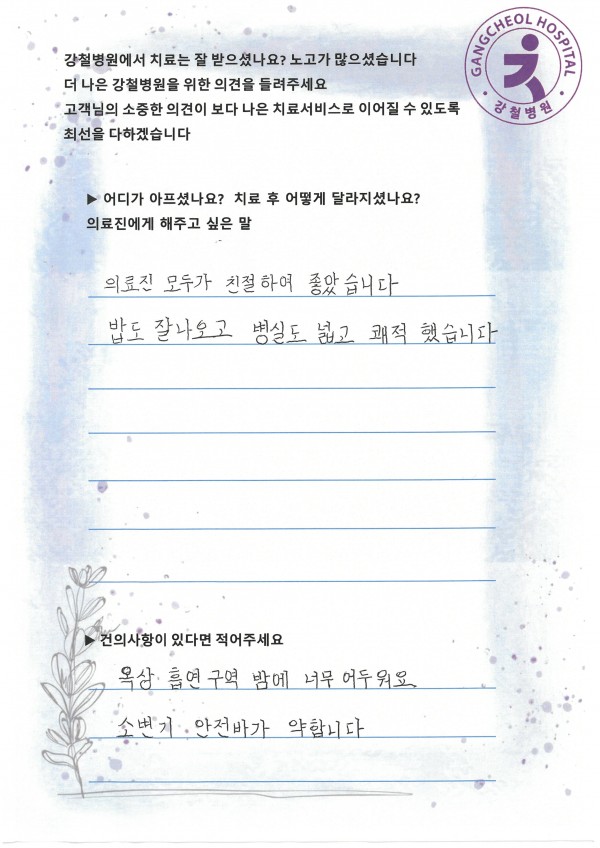 강철병원에서 치료는 잘 받으셨나요? 노고가 많으셨습니다
더 나은 강철병원을 위한 의견을 들려주세요
고객님의 소중한 의견이 보다 나은 치료서비스로 이어질 수 있도록
최선을 다하겠습니다
GANGCHEOL HOSPITAL
강철병원
▶ 어디가 아프셨나요? 치료 후 어떻게 달라지셨나요?
의료진에게 해주고 싶은 말
의료진 모두가 친절하여 좋았습니다
밥도 잘나오고 병실도 넓고 쾌적 했습니다
▶ 건의사항이 있다면 적어주세요
옥상 흡연구역 밤에 너무 어두워요
소변기 안전바가 약합니다